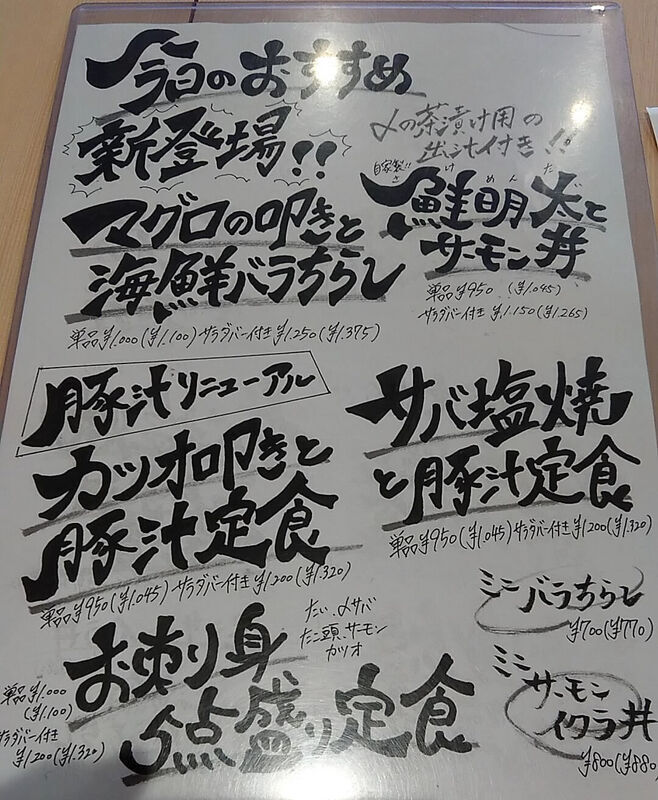 今日のおすすめ
新登場!!
マグロの叩きと
海鮮バラちらし
単品¥1.000(¥1.100) サラダバー付き ¥1.250(¥1.375)
〆の茶漬け用の
出汁付き!!
自家製!!
さけめんた
鮭明太と
サーモン丼
単品¥950 (¥1.045)
サラダバー付き ¥1.150(¥1.265)
豚汁リニューアル
カツオ叩きと
豚汁定食
単品¥950(¥1.045) サラダバー付き ¥1.200(¥1.320)
サバ塩焼
と豚汁定食
単品¥950(¥1.045) サラダバー付き ¥1.200(¥1.320)
お刺身
5点盛り定食
たい、〆サバ
たこ頭、サーモン
カツオ
単品¥1.000
(¥1.100)
サラダバー付き
¥1.200(¥1.320)
ミニバラちらし
¥700(¥770)
ミニ
サーモン
イクラ丼
¥800(¥880